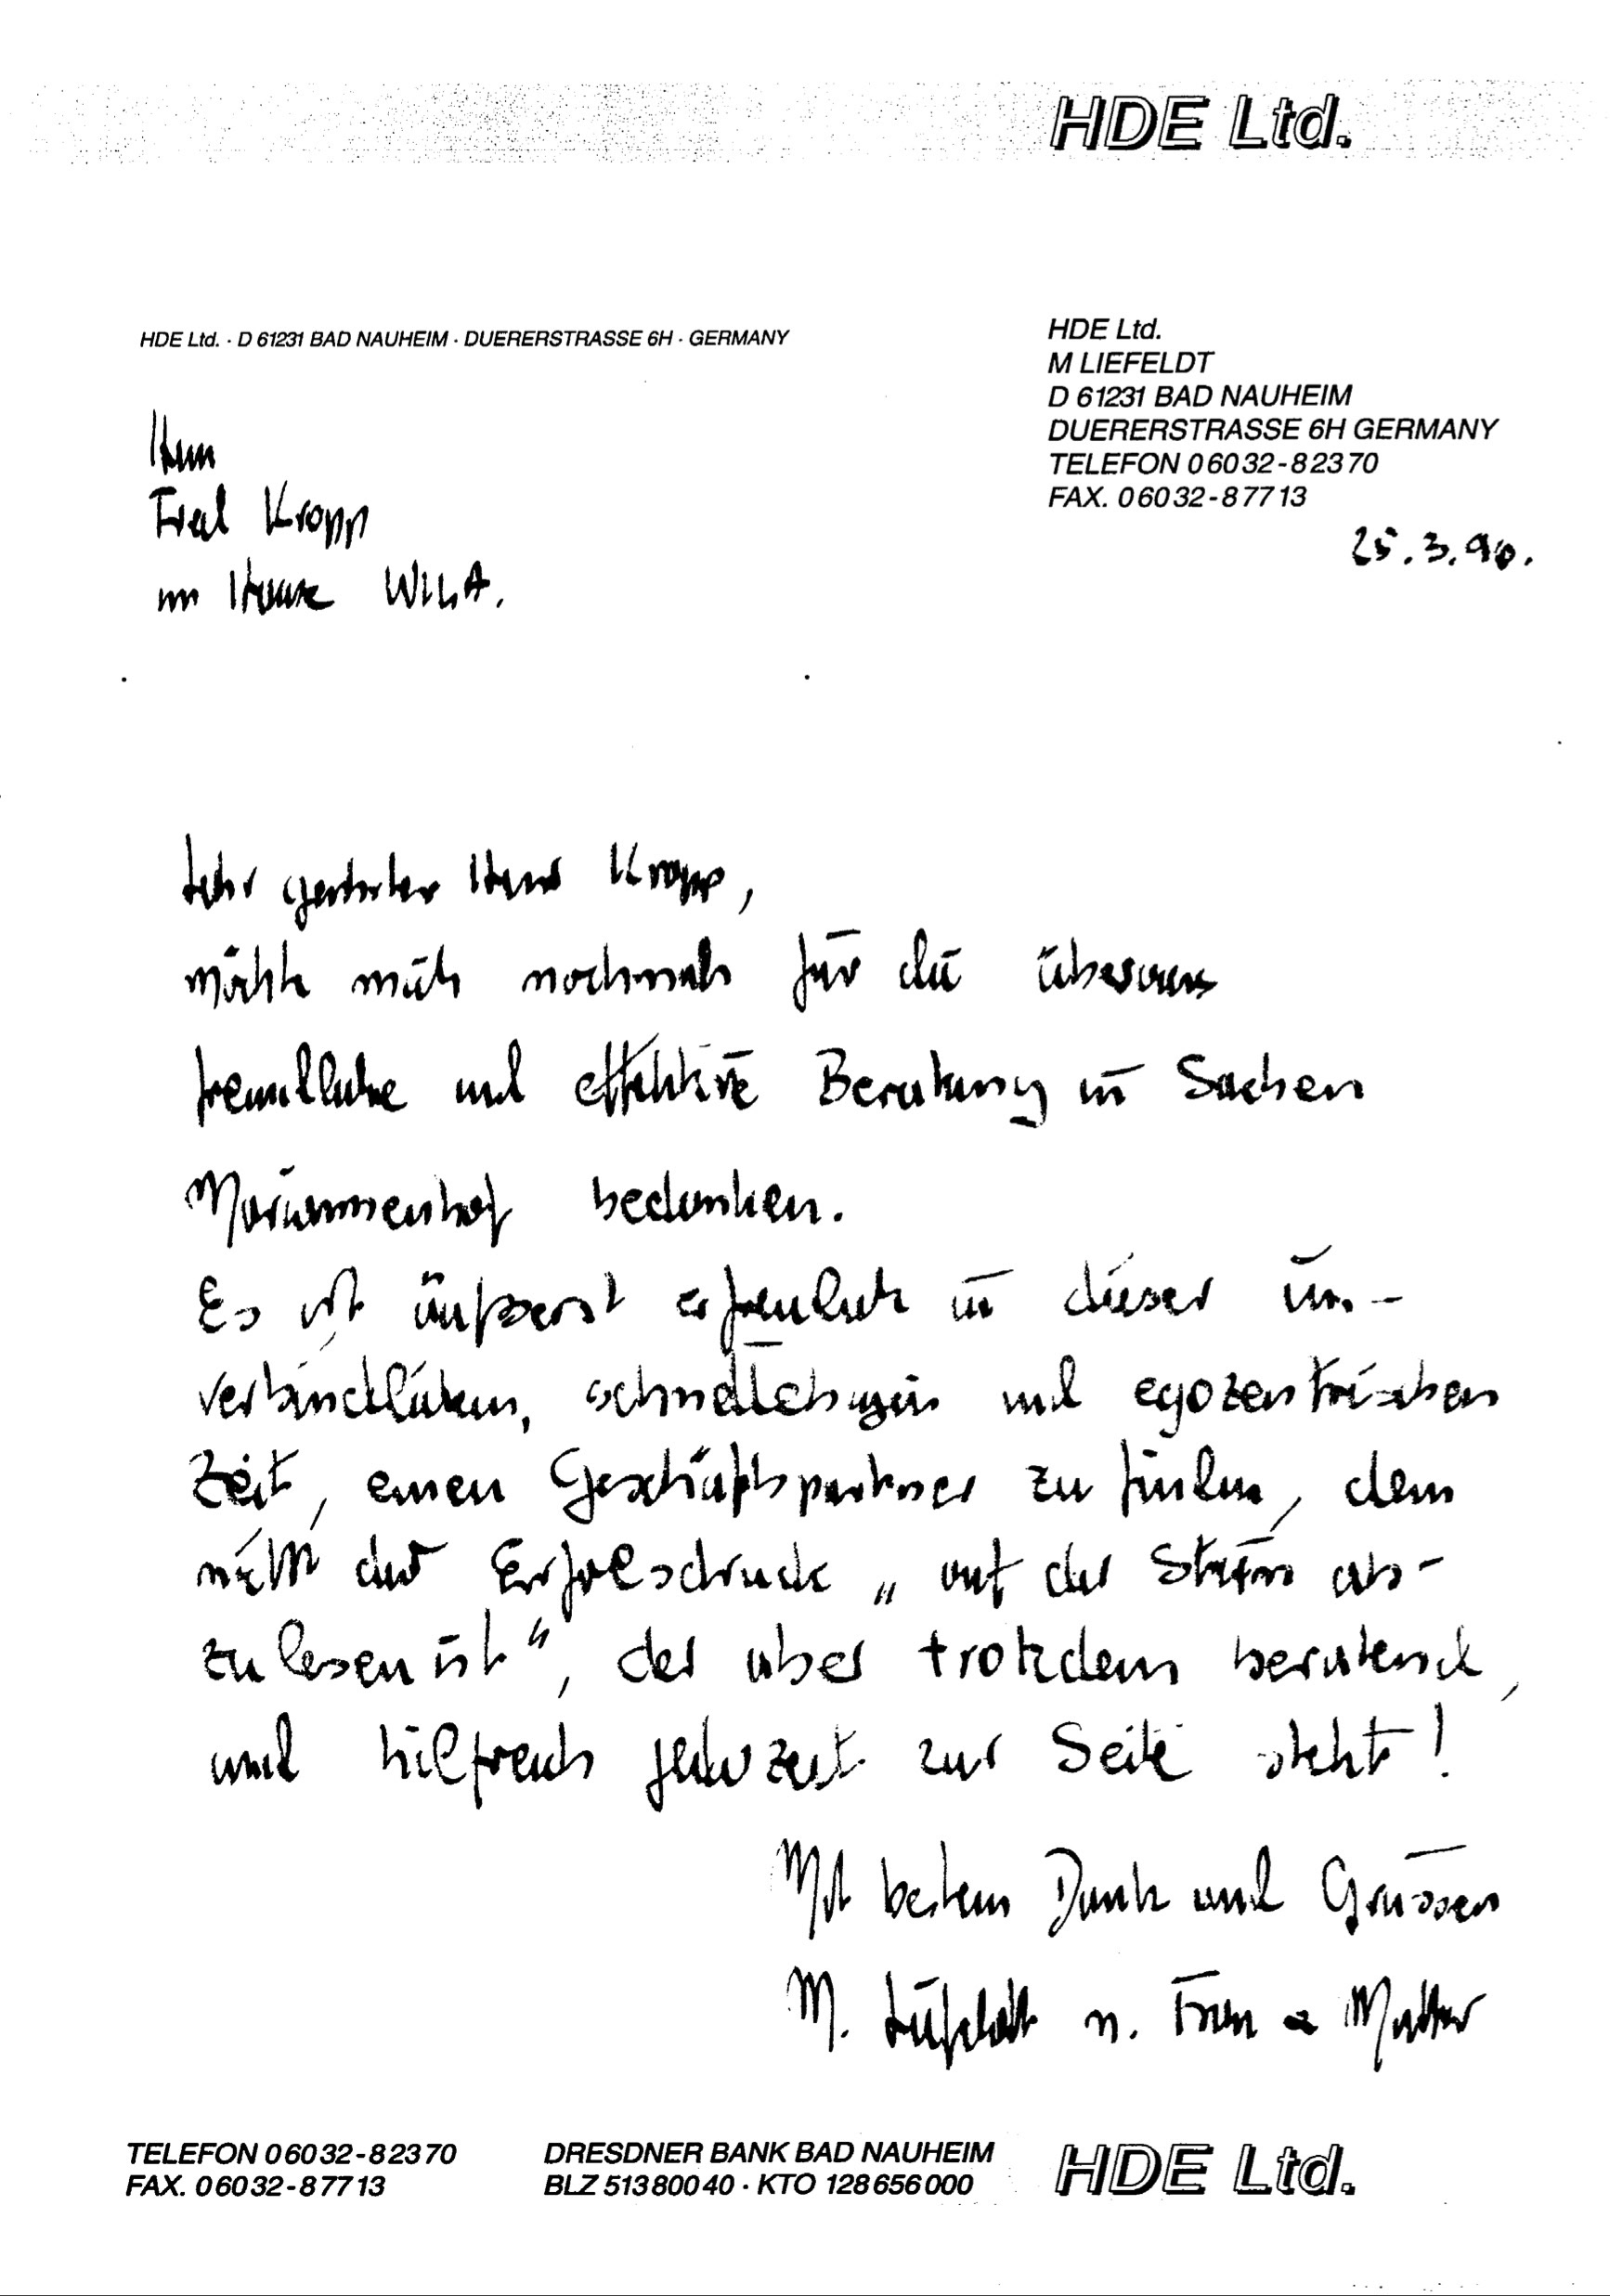 HDE Ltd.
HDE Ltd. · D 61231 BAD NAUHEIM · DUERERSTRASSE 6H · GERMANY
HDE Ltd.
M LIEFELDT
D 61231 BAD NAUHEIM
DUERERSTRASSE 6H GERMANY
TELEFON 06032-82370
FAX. 06032-87713
25.3.96.
Herrn
Fred Kropp
im Hause WILA.
Sehr geehrter Herr Kropp,
möchte mich nochmals für die überaus
freundliche und effektive Beratung in Sachen
Mariannenhof bedanken.
Es ist äußerst erfreulich in dieser un-
verbindlichen, schnellebigen und egozentrischen
Zeit, einen Geschäftspartner zu finden, dem
nicht der Erfolsdruck „auf der Stirn ab-
zulesen ist“, der aber trotzdem beratend,
und hilfreich jederzeit zur Seite steht!
Mit bestem Dank und Grüssen
M. Liefeldt n. Frau & Mutter
TELEFON 06032-82370
FAX. 06032-87713
DRESDNER BANK BAD NAUHEIM
BLZ 51380040 · KTO 128656000
HDE Ltd.